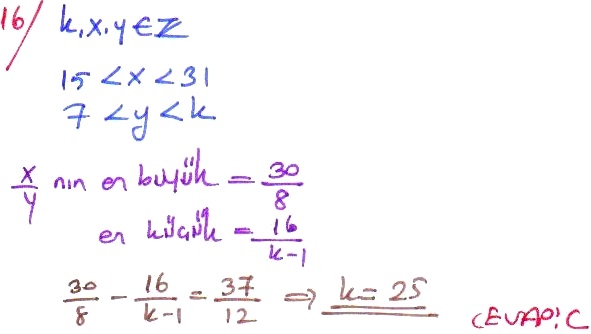 16/ k,x,y ∈ Z
15 < x < 31
7 < y < k
x/y nin en büyük = 30/8
en küçük = 16/k-1
30/8 - 16/k-1 = 37/12 ⇒ k = 25
CEVAP: C